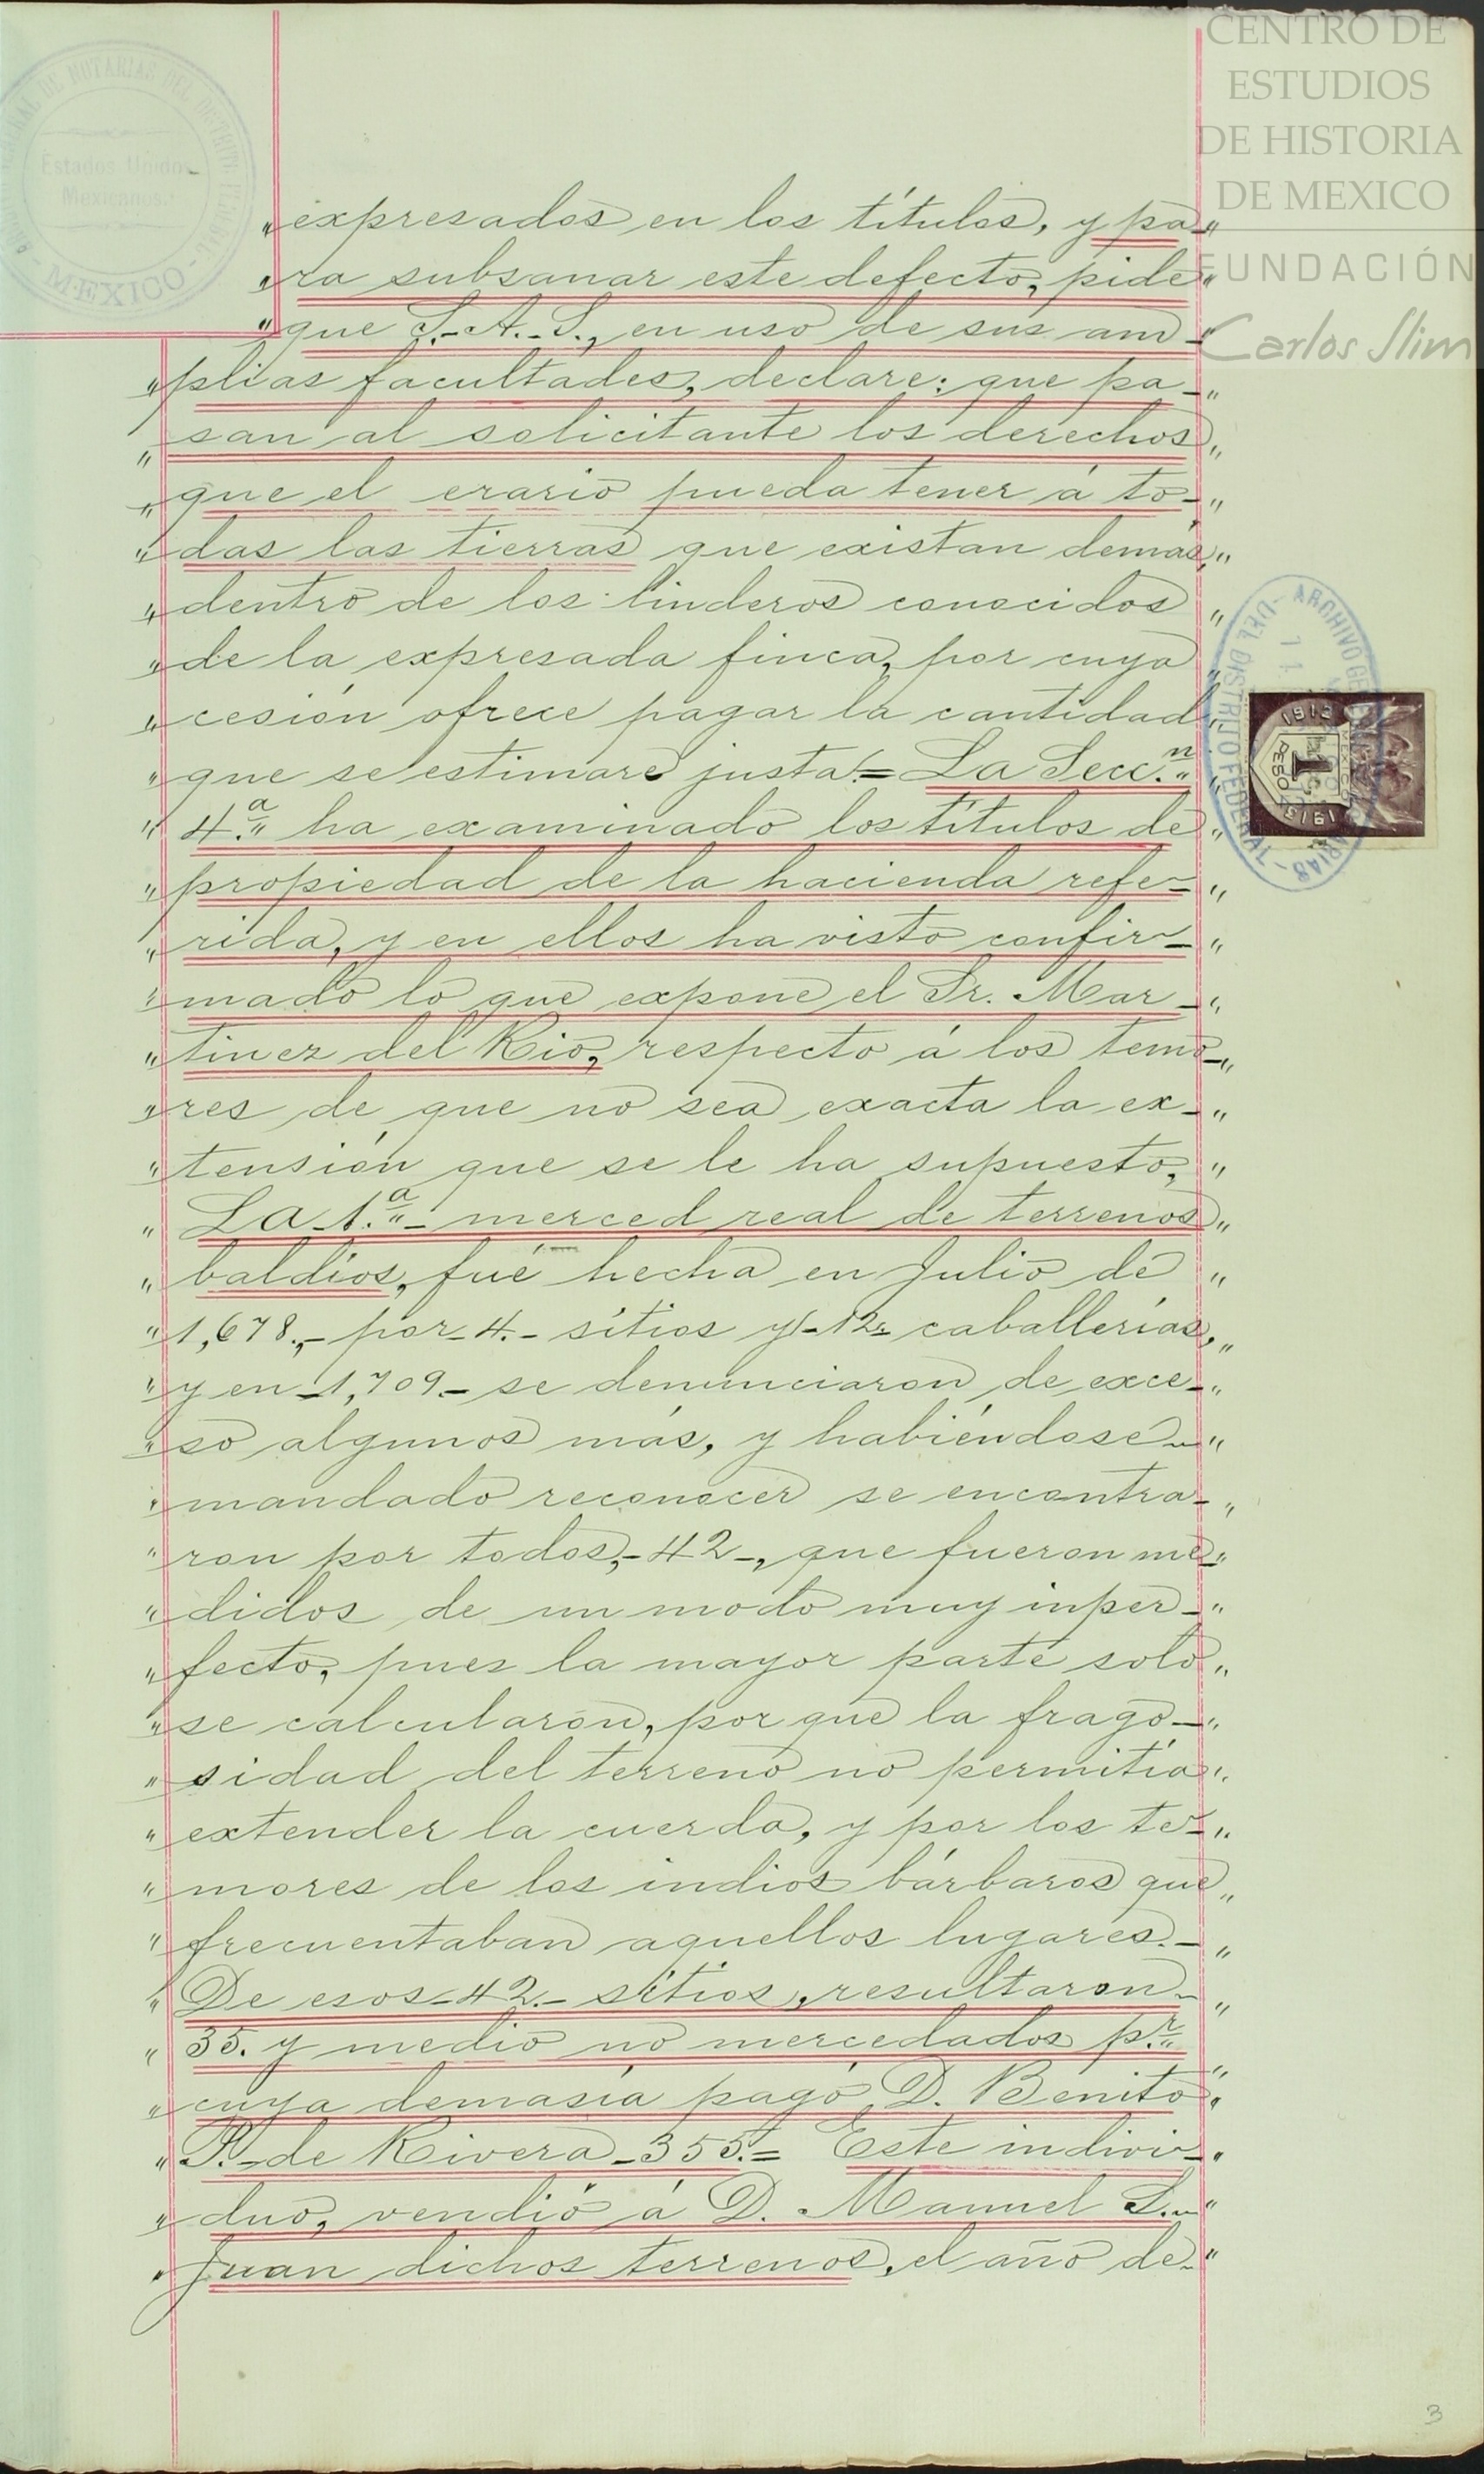 CENTRO DE
ESTUDIOS
DE HISTORIA
DE MEXICO
FUNDACIÓN
Carlos Slim
Estados Unidos
Mexicanos.
MEXICO
„expresados en los títulos, y pa-"
„ra subsanar este defecto, pide"
"que S.-A.-S., en uso de sus am-"
„plias facultades, declare: que pa-„
„san al solicitante los derechos„
„que el erario pueda tener á to-„
"das las tierras que existan demás,"
„dentro de los linderos conocidos„
„de la expresada finca, por cuya„
„cesión ofrece pagar la cantidad„
"que se estimare justa.= La Secc.n"
"4.a ha examinado los títulos de"
„propiedad de la hacienda refe-„
„rida, y en ellos ha visto confir-„
"mado lo que expone el Sr. Mar-„
"tinez del Rio, respecto á los temo-„
„res de que no sea exacta la ex-„
"tensión que se le ha supuesto,"
„La 1.a- merced real de terrenos„
„baldíos, fué hecha en Julio de„
"1,678.,- por-4.- sítios y-12- caballerías,„
"y en-1,709.- se denunciaron de exce-„
„so algunos más, y habiéndose-"
"mandado reconocer se encontra-„
"ron por todos,-42-, que fueron me-"
„didos de un modo muy inper-"
„fecto, pues la mayor parte solo„
„se calcularon, por que la frago-"
„sidad del terreno no permitía"
„extender la cuerda, y por los te-„
„mores de los indios bárbaros que„
"frecuentaban aquellos lugares.-„
„De esos-42.- sítios, resultaron-„
„35. y medio no mercedados p.r
„cuya demasía pagó D. Benito„
„P.-de Rivera-355.= Este indivi-„
„duo, vendió á D. Manuel S.-"
„Juan dichos terrenos, el año de-"
ARCHIVO GE
DEL DISTRITO FEDERAL
1912
1
PESO
1913
3